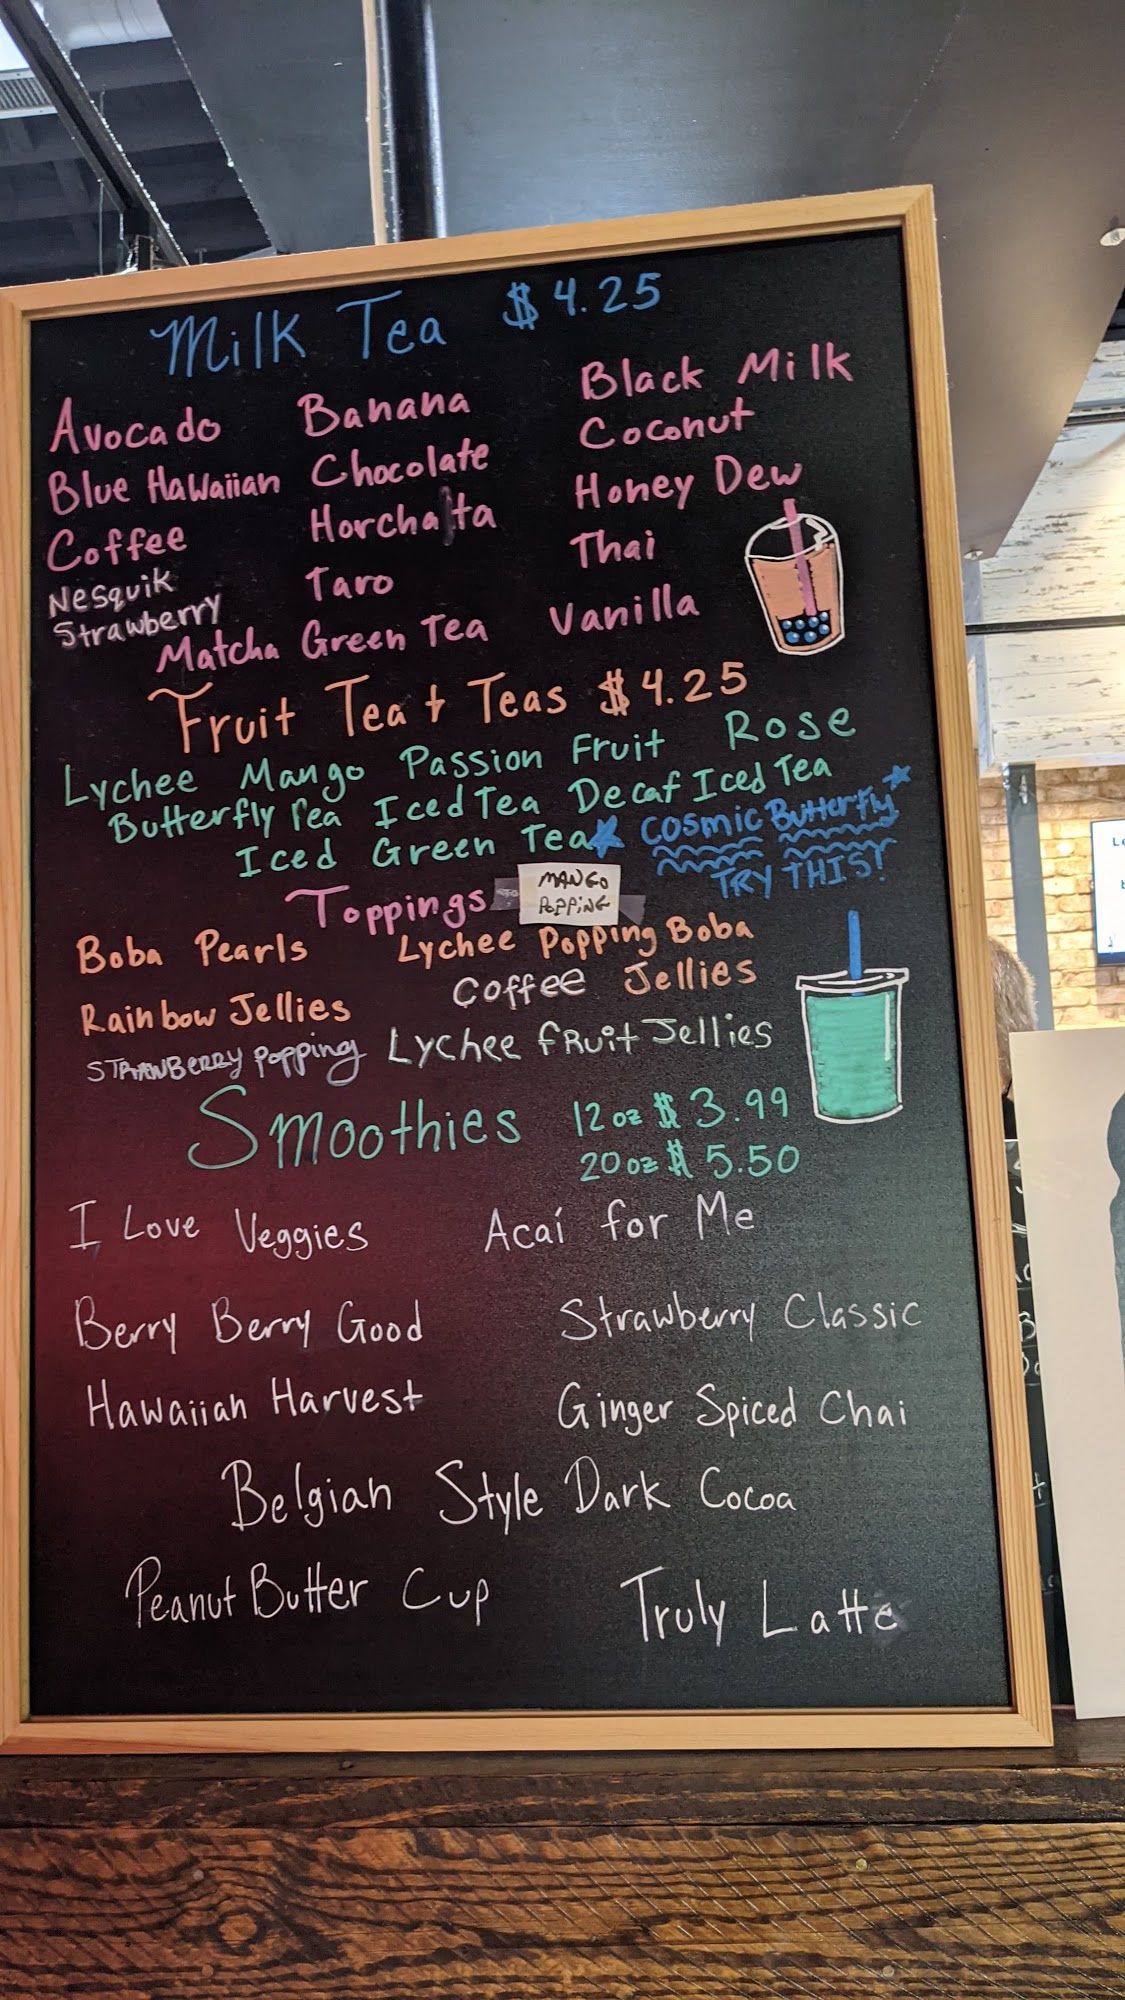 Milk Tea $4.25
Avocado Banana Black Milk
Blue Hawaiian Chocolate Coconut
Coffee Horchata Honey Dew
Nesquik Strawberry Taro Thai
Matcha Green Tea Vanilla
Fruit Tea + Teas $4.25
Lychee Mango Passion Fruit Rose
Butterfly Tea Iced Tea Decaf Iced Tea
Iced Green Tea Cosmic Butterfly
TRY THIS!
Toppings MANGO POPPiNG
Boba Pearls Lychee Popping Boba
Rainbow Jellies Coffee Jellies
STRAWBERRY Popping Lychee fRuit Jellies
Smoothies 12oz $3.99
20oz $5.50
I Love Veggies Acaí for Me
Berry Berry Good Strawberry Classic
Hawaiian Harvest Ginger Spiced Chai
Belgian Style Dark Cocoa
Peanut Butter Cup Truly Latte